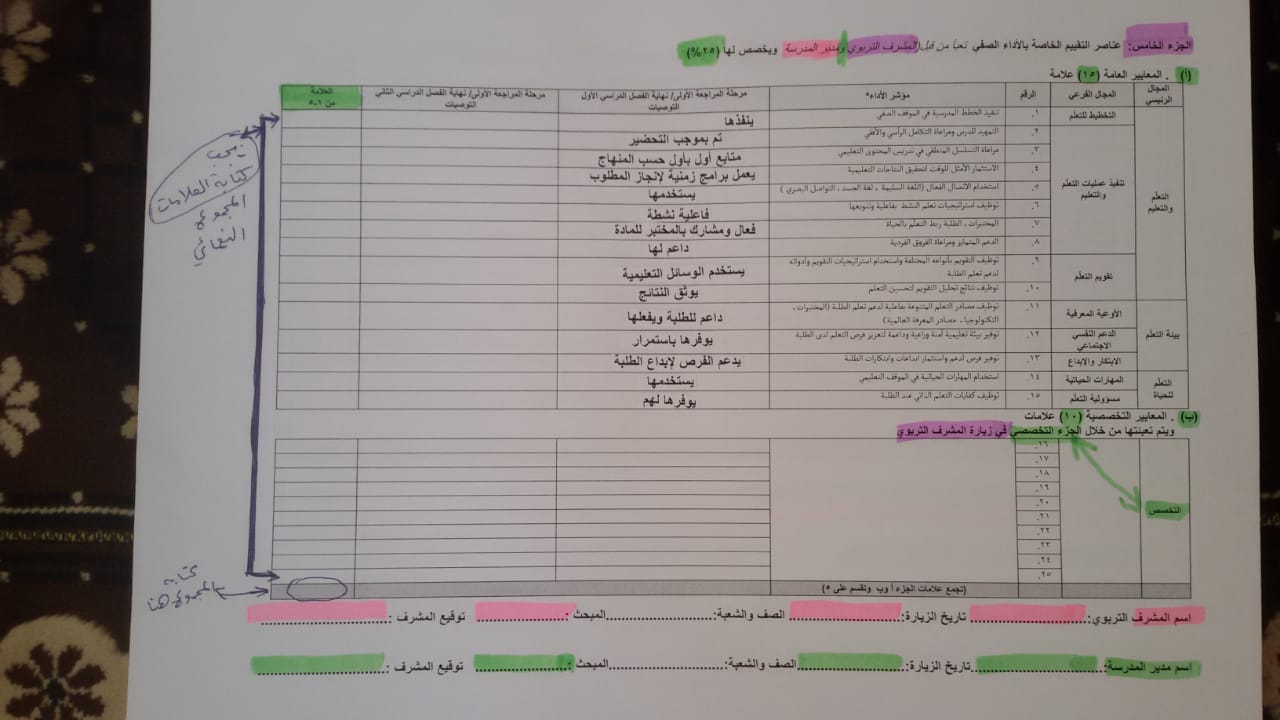 الجزء الخامس: عناصر التقييم الخاصة بالأداء الصفي تعبأ من قبل (المشرف التربوي ومدير المدرسة ويخصص لها (٢٥%)
(أ) . المعايير العامة (١٥) علامة
المجال الرئيسي المجال الفرعي الرقم مؤشر الأداء* مرحلة المراجعة الأولى/ نهاية الفصل الدراسي الأول التوصيات مرحلة المراجعة الأولى/ نهاية الفصل الدراسي الثاني التوصيات العلامة من ١-٥
التعلم والتعليم التخطيط للتعلم ١. تنفيذ الخطط المدرسية في الموقف الصفي ينفذها
تنفيذ عمليات التعلم والتعليم ٢. التمهيد للدرس ومراعاة التكامل الرأسي والأفقي تم بموجب التحضير
٣. مراعاة التسلسل المنطقي في تدريس المحتوى التعليمي متابع أول بأول حسب المنهاج
٤. الاستثمار الأمثل للوقت لتحقيق النتاجات التعليمية يعمل برامج زمنية لإنجاز المطلوب
٥. استخدام الاتصال الفعال (اللغة السليمة ، لغة الجسد ، التواصل البصري ) يستخدمها
٦. توظيف استراتيجيات تعلم النشط بفاعلية وتنويعها فاعلية نشطة
٧. المختبرات ، الطلبة ربط التعلم بالحياة فعال ومشارك بالمختبر للمادة
٨. الدعم المتمايز ومراعاة الفروق الفردية داعم لها
تقويم التعلم ٩. توظيف التقويم بأنواعه المختلفة واستخدام استراتيجيات التقويم وأدواته لدعم تعلم الطلبة يستخدم الوسائل التعليمية
١٠. توظيف نتائج تحليل التقويم لتحسين التعلم يوثق النتائج
بيئة التعلم الأوعية المعرفية ١١. توظيف مصادر التعلم المتنوعة بفاعلية لدعم تعلم الطلبة (المختبرات ، التكنولوجيا ، مصادر المعرفة العالمية) داعم للطلبة ويفعلها
الدعم النفسي الاجتماعي ١٢. توفير بيئة تعليمية آمنة وراعية وداعمة لتعزيز فرص التعلم لدى الطلبة يوفرها باستمرار
الابتكار والإبداع ١٣. توفير فرص لدعم واستثمار ابداعات وابتكارات الطلبة يدعم الفرص لإبداع الطلبة
التعلم للحياة المهارات الحياتية ١٤. استخدام المهارات الحياتية في الموقف التعليمي يستخدمها
مسؤولية التعلم ١٥. توظيف كفايات التعلم الذاتي عند الطلبة يوفرها لهم
يجب
كتابة العلامات
المجموع
النهائي
(ب) . المعايير التخصصية (١٠) علامات
ويتم تعبئتها من خلال الجزء التخصصي في زيارة المشرف التربوي
١٦.
١٧.
١٨.
١٩.
٢٠.
التخصص ٢١.
٢٢.
٢٣.
٢٤.
٢٥.
(تجمع علامات الجزء أ وب وتقسم على ٥)
كتابة
المجموع هنا
اسم المشرف التربوي: تاريخ الزيارة: الصف والشعبة: المبحث : توقيع المشرف :
اسم مدير المدرسة: تاريخ الزيارة: الصف والشعبة: المبحث : توقيع المشرف :